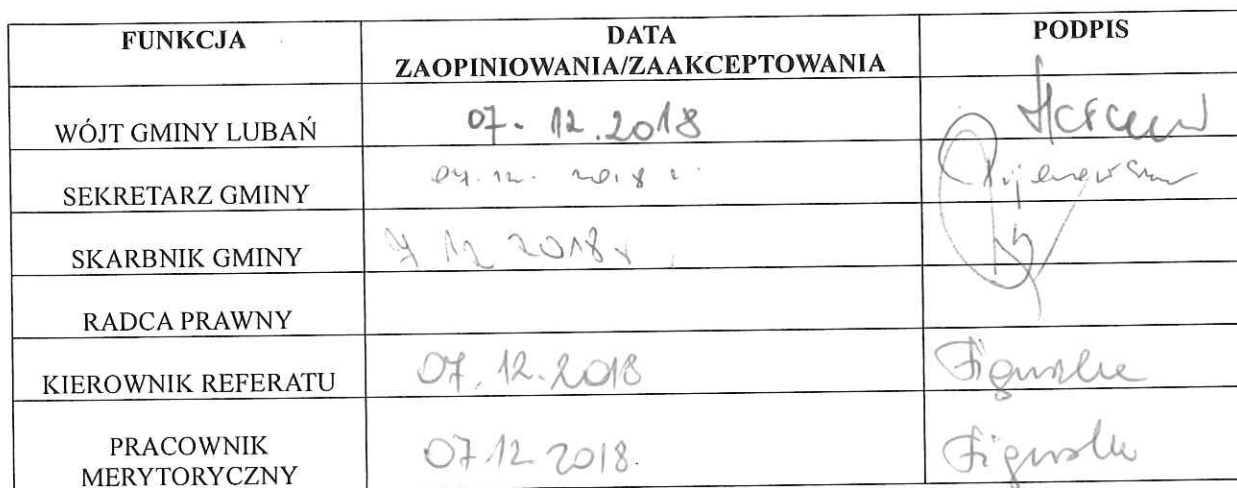 FUNKCJA DATA PODPIS
ZAOPINIOWANIA/ZAAKCEPTOWANIA
WÓJT GMINY LUBAŃ 07. 12.2018
SEKRETARZ GMINY 07.12. 2018 r.
SKARBNIK GMINY 7 12 2018r
RADCA PRAWNY
KIEROWNIK REFERATU 07.12.2018
PRACOWNIK
MERYTORYCZNY 07.12 2018.